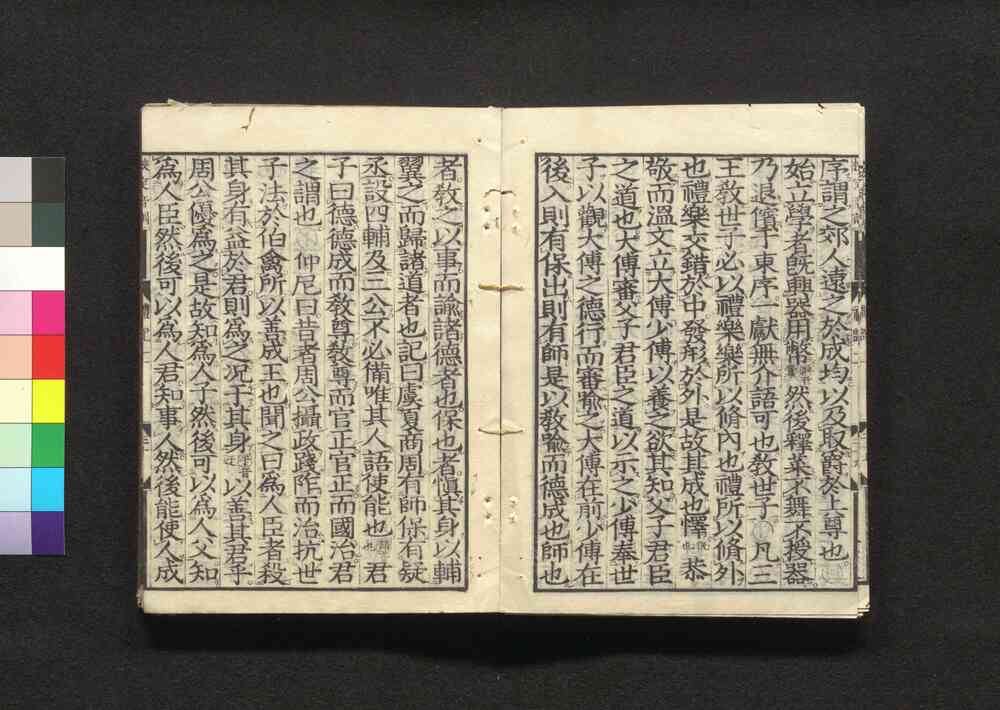 序謂之郊人遠之於成均以及取爵於上尊也
始立學者既興器用幣然後釋菜不舞不授器
乃退儐于東序一獻無介語可也教世子凡三
王教世子必以禮樂樂所以脩內也禮所以脩外
也禮樂交錯於中發形於外是故其成也懌恭
敬而溫文立大傅少傅以養之欲其知父子君臣
之道也大傅審父子君臣之道以示之少傅奉世
子以觀大傅之德行而審喻之大傅在前少傅在
後入則有保出則有師是以教喻而德成也師也
者教之以事而諭諸德者也保也者慎其身以輔
翼之而歸諸道者也記曰虞夏商周有師保有疑
丞設四輔及三公不必備唯其人語使能也君
子曰德德成而教尊教尊而官正官正而國治君
之謂也仲尼曰昔者周公攝政踐阼而治抗世
子法於伯禽所以善成王也聞之曰為人臣者殺
其身有益於君則為之况于其身以善其君乎
周公優為之是故知為人子然後可以為人父知
為人臣然後可以為人君知事人然後能使人成